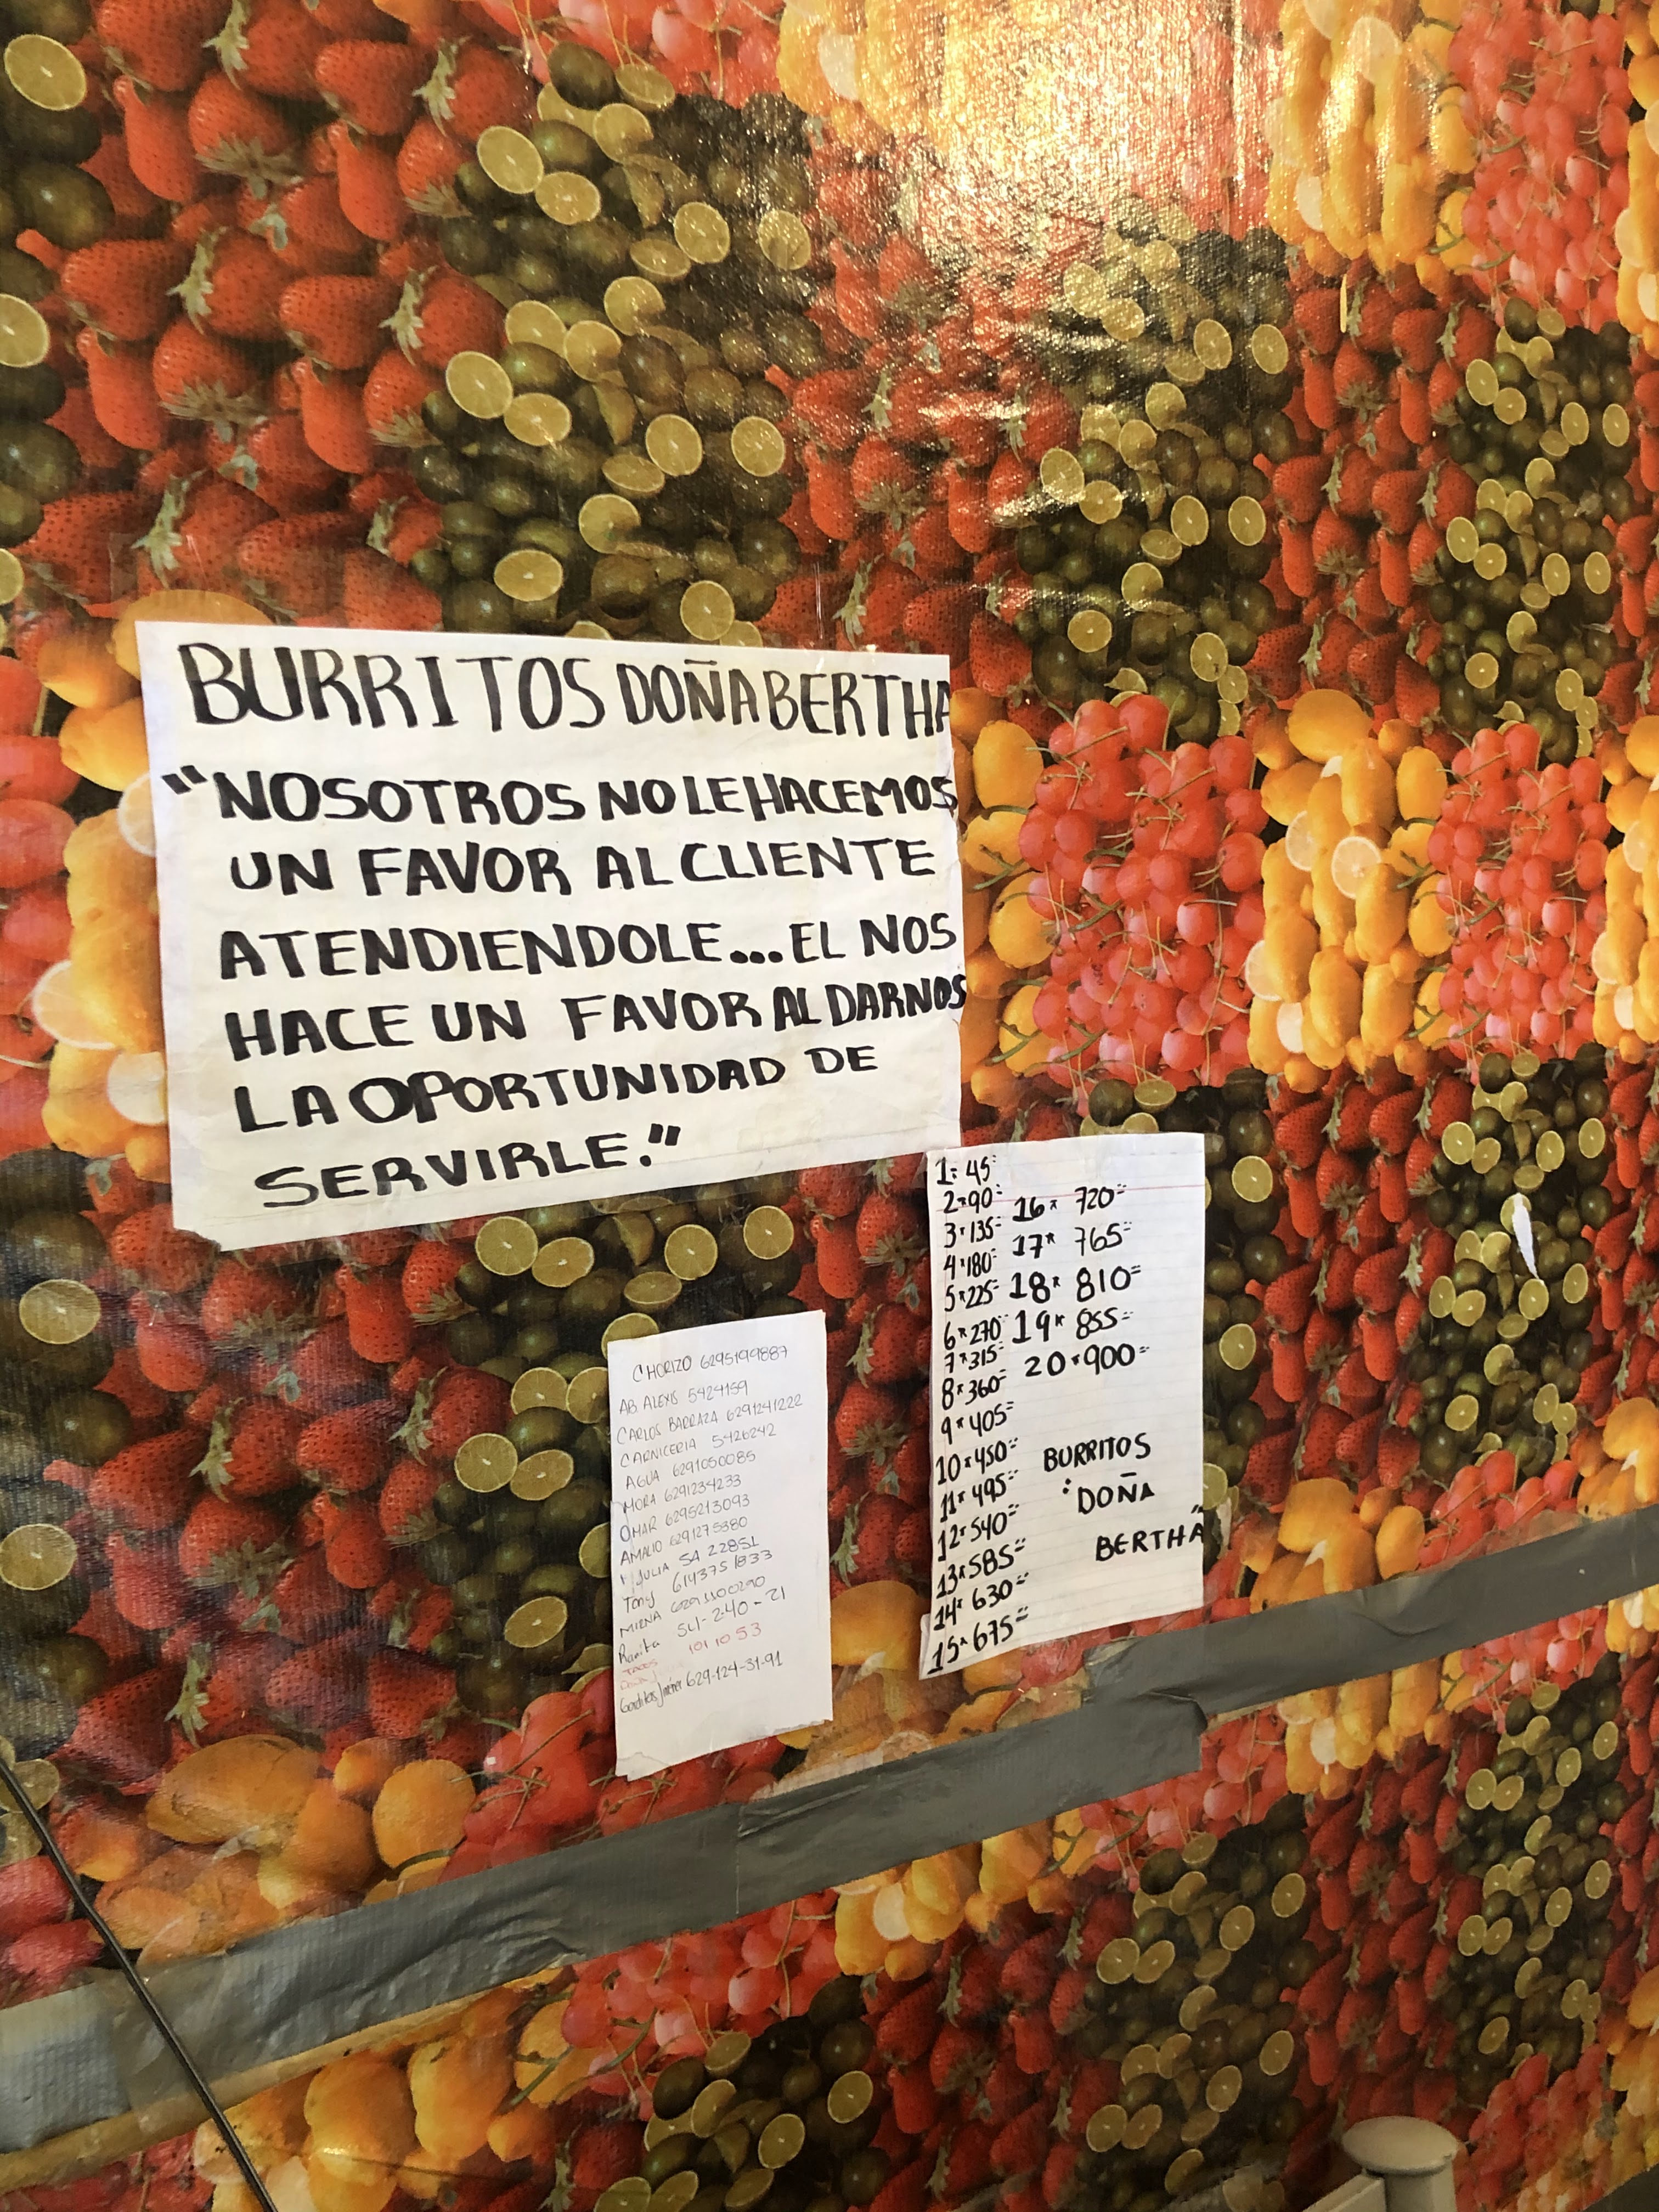 BURRITOS DOÑA BERTHA
"NOSOTROS NO LE HACEMOS
UN FAVOR AL CLIENTE
ATENDIENDOLE... EL NOS
HACE UN FAVOR AL DARNOS
LA OPORTUNIDAD DE
SERVIRLE."
CHORIZO 6295199887
AB. ALEXIS 5424159
CARLOS BARRAZA 6291241222
CARNICERIA 5426242
AGUA 6291050085
MORA 6291234233
OMAR 6295213093
AMALIO 6291275380
JULIA 54 22851
Tony 6143751833
MIRNA
Ranita 541-240-21
101 10 53
629-124-31-91
1=45=
2*90=
3*135=
4*180=
5*225=
6*270=
7*315=
8*360=
9*405=
10*450=
11*495=
12*540=
13*585=
14*630=
15*675=
16* 720=
17* 765=
18* 810=
19* 855=
20*900=
BURRITOS
"DOÑA
BERTHA"